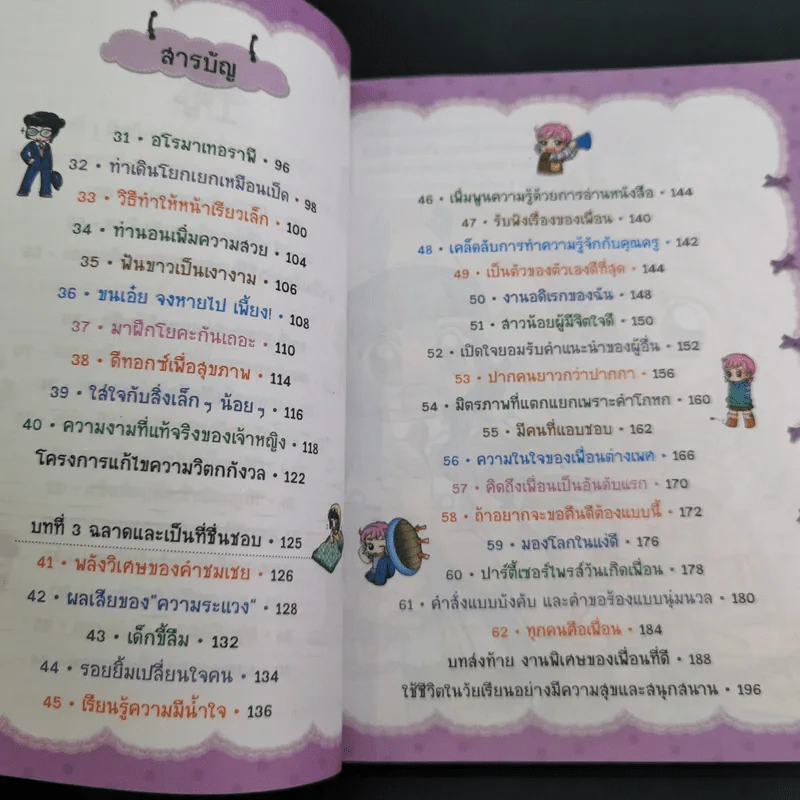 สารบัญ
31 • อโรมาเทอราพี • 96
32 • ท่าเดินโยกเยกเหมือนเป็ด • 98
33 • วิธีทำให้หน้าเรียวเล็ก • 100
34 • ท่านอนเพิ่มความสวย • 104
35 • ฟันขาวเป็นเงางาม • 106
36 • ขนเอ๋ย จงหายไป เพี้ยง! • 108
37 • มาฝึกโยคะกันเถอะ • 110
38 • ดีทอกซ์เพื่อสุขภาพ • 114
39 • ใส่ใจกับสิ่งเล็ก ๆ น้อย ๆ • 116
40 • ความงามที่แท้จริงของเจ้าหญิง • 118
โครงการแก้ไขความวิตกกังวล • 122
บทที่ 3 ฉลาดและเป็นที่ชื่นชอบ • 125
41 • พลังวิเศษของคำชมเชย • 126
42 • ผลเสียของ"ความระแวง" • 128
43 • เด็กขี้ลืม • 132
44 • รอยยิ้มเปลี่ยนใจคน • 134
45 • เรียนรู้ความมีน้ำใจ • 136
46 • เพิ่มพูนความรู้ด้วยการอ่านหนังสือ • 144
47 • รับฟังเรื่องของเพื่อน • 140
48 • เคล็ดลับการทำความรู้จักกับคุณครู • 142
49 • เป็นตัวของตัวเองดีที่สุด • 144
50 • งานอดิเรกของฉัน • 148
51 • สาวน้อยผู้มีจิตใจดี • 150
52 • เปิดใจยอมรับคำแนะนำของผู้อื่น • 152
53 • ปากคนยาวกว่าปากกา • 156
54 • มิตรภาพที่แตกแยกเพราะคำโกหก • 160
55 • มีคนที่แอบชอบ • 162
56 • ความในใจของเพื่อนต่างเพศ • 166
57 • คิดถึงเพื่อนเป็นอันดับแรก • 170
58 • ถ้าอยากจะขอคืนดีต้องแบบนี้ • 172
59 • มองโลกในแง่ดี • 176
60 • ปาร์ตี้เซอร์ไพรส์วันเกิดเพื่อน • 178
61 • คำสั่งแบบบังคับ และคำขอร้องแบบนุ่มนวล • 180
62 • ทุกคนคือเพื่อน • 184
บทส่งท้าย งานพิเศษของเพื่อนที่ดี • 188
ใช้ชีวิตในวัยเรียนอย่างมีความสุขและสนุกสนาน • 196